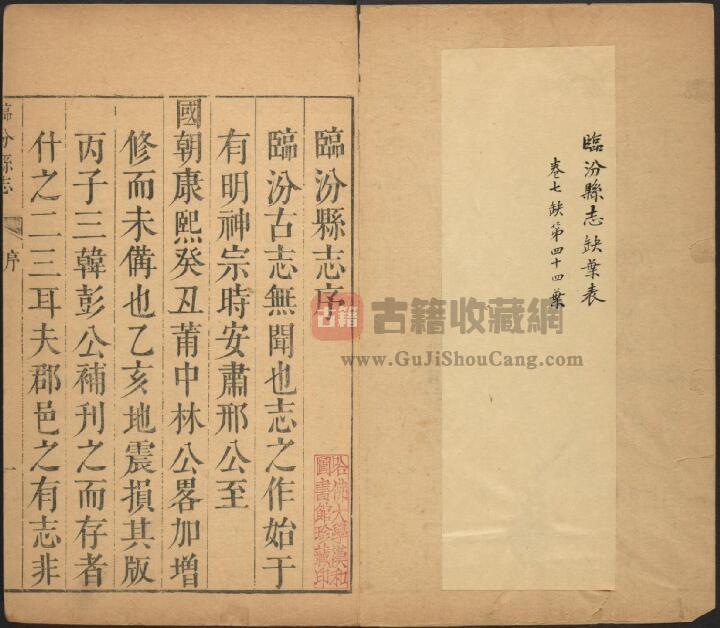 臨汾縣志缺葉表
卷七缺第四十四葉
臨汾縣志序
臨汾古志無聞也志之作始于
有明神宗時安肅邢公至
國朝康熙癸丑莆中林公畧加增
修而未備也乙亥地震損其版
丙子三韓彭公補刊之而存者
什之二三耳夫郡邑之有志非
臨汾縣志
序
一
哈佛大學漢和
圖書館珍藏印
古籍
古籍收藏網
www.GuJiShouCang.com